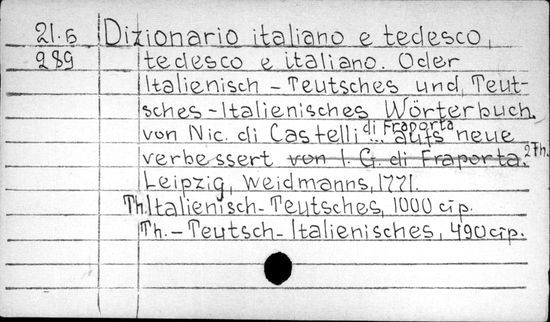 21.6 Dizionario italiano e tedesco,
289 tedesco e italiano. Oder
Italienisch-Teutsches und Teut-
sches-Italienisches Wörterbuch.
von Nic. di Castelli di Fraporta ... aufs neue
verbessert von I. G. di Fraporta. 2Th.
Leipzig, Weidmanns, 1771.
Th. Italienisch-Teutsches, 1000 стр.
Th.-Teutsch-Italienisches, 490 стр.